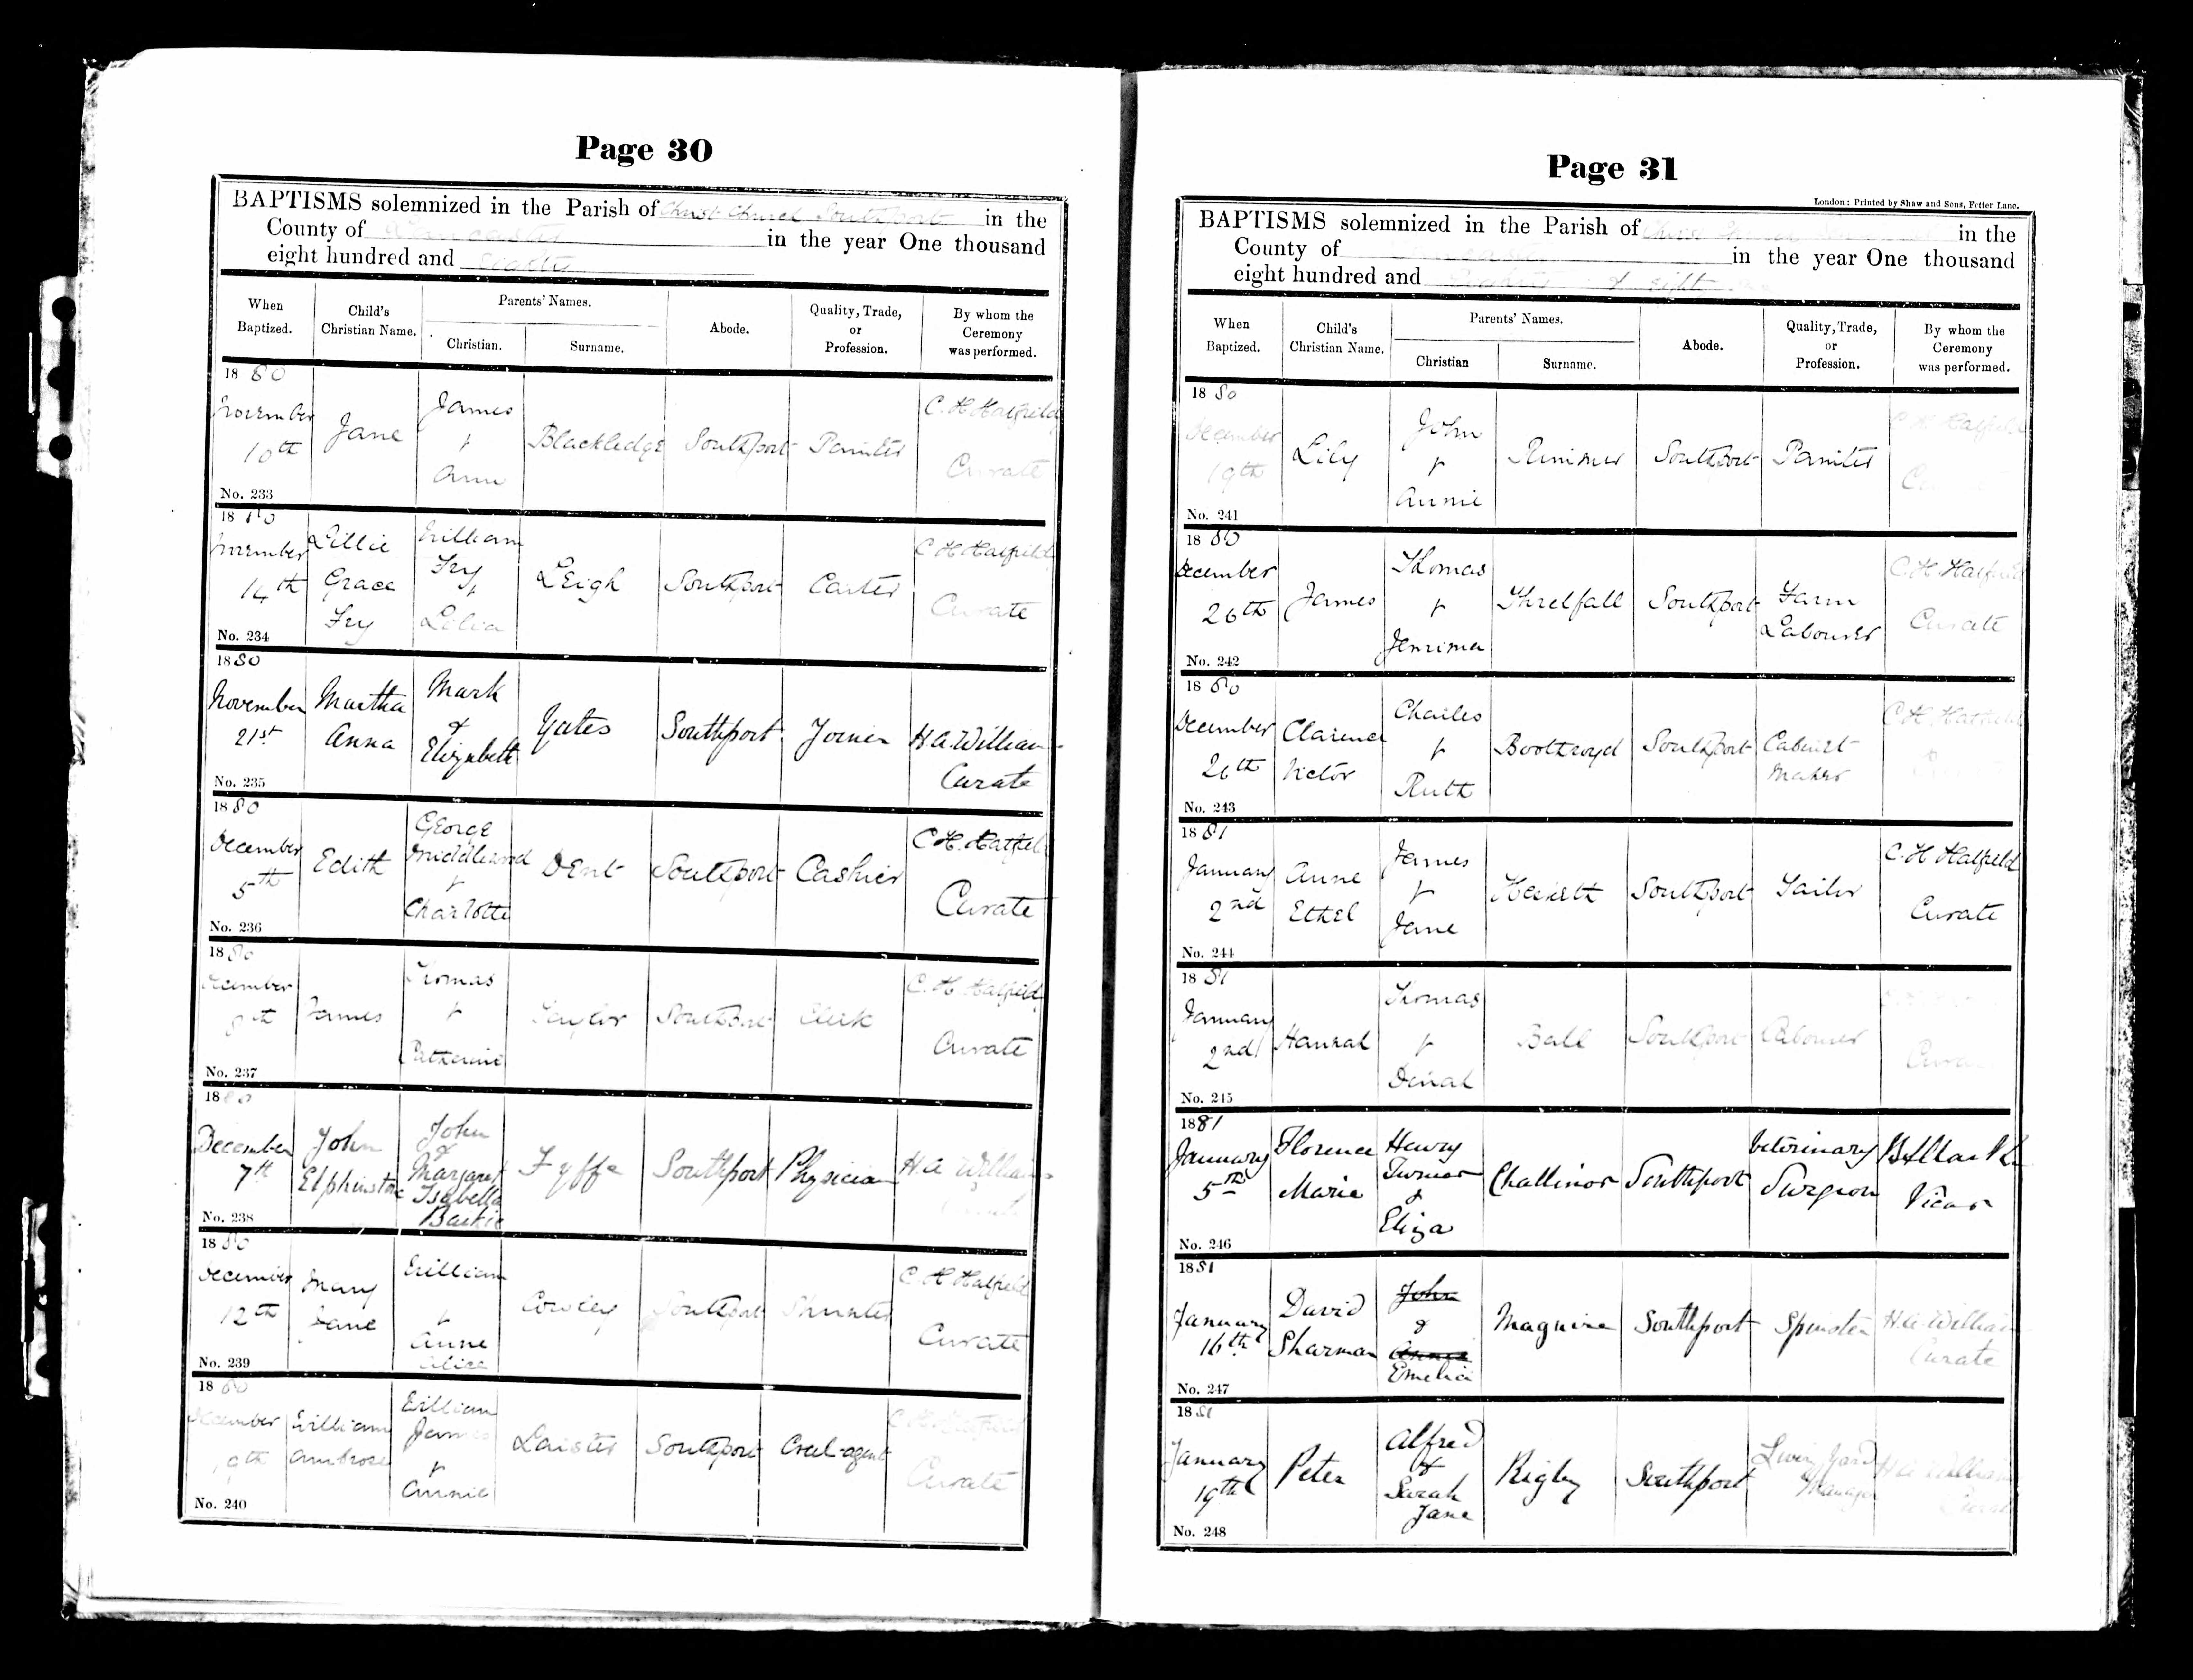 Page 30
BAPTISMS solemnized in the Parish of Christ Church Southport in the
County of Lancaster in the year One thousand
eight hundred and eighty
When Baptized. Child's Christian Name. Parents' Names. Christian. Surname. Abode. Quality, Trade, or Profession. By whom the Ceremony was performed.
1880
November 10th Jane James & Ann Blackledge Southport Painter C. H. Hatfield Curate
No. 233
1880
November 14th Lillie Grace Fry William Fry & Lelia Leigh Southport Carter C H Hatfield Curate
No. 234
1880
November 21st Martha Anna Mark & Elizabeth Yates Southport Joiner H A William Curate
No. 235
1880
December 5th Edith George & Charlotte Dent Southport Cashier C. H. Hatfield Curate
No. 236
1880
December 8th James Thomas & Catherine Taylor Southport Clerk C. H. Hatfield Curate
No. 237
1880
December 7th John Elphinstone John & Margaret Isabella Fyffe Southport Physician H A Williams
No. 238
1880
December 12th Mary Jane William & Anne Alice Southport C H Hatfield Curate
No. 239
1880
December William Ambrose William James & Annie Laister Southport Coal-agent Curate
No. 240
Page 31
London: Printed by Shaw and Sons, Fetter Lane.
BAPTISMS solemnized in the Parish of Christ in the
County of Lancaster in the year One thousand
eight hundred and
When Baptized. Child's Christian Name. Parents' Names. Christian Surname. Abode. Quality, Trade, or Profession. By whom the Ceremony was performed.
1880
December 19th Lily John & Annie Rimmer Southport Painter C H Hatfield
No. 241
1880
December 26th James Thomas & Jemima Threlfall Southport Farm Labourer C. H. Hatfield Curate
No. 242
1880
December 26th Clarence Victor Charles & Ruth Boothroyd Southport Cabinet Maker C H Hatfield
No. 243
1881
January 2nd Anne Ethel James & Jane Southport Tailor C. H Hatfield Curate
No. 244
1881
January 2nd Hannah Thomas & Dinah Ball Southport Labourer Curate
No. 245
1881
January 5th Florence Maria Henry Turner & Eliza Challinor Southport Veterinary Surgeon Vicar
No. 246
1881
January 16th David Sharman John & Annie Emelia Maguire Southport Spinster H A William Curate
No. 247
1881
January 19th Peter Alfred & Sarah Jane Rigby Southport Yard Manager H A William
No. 248